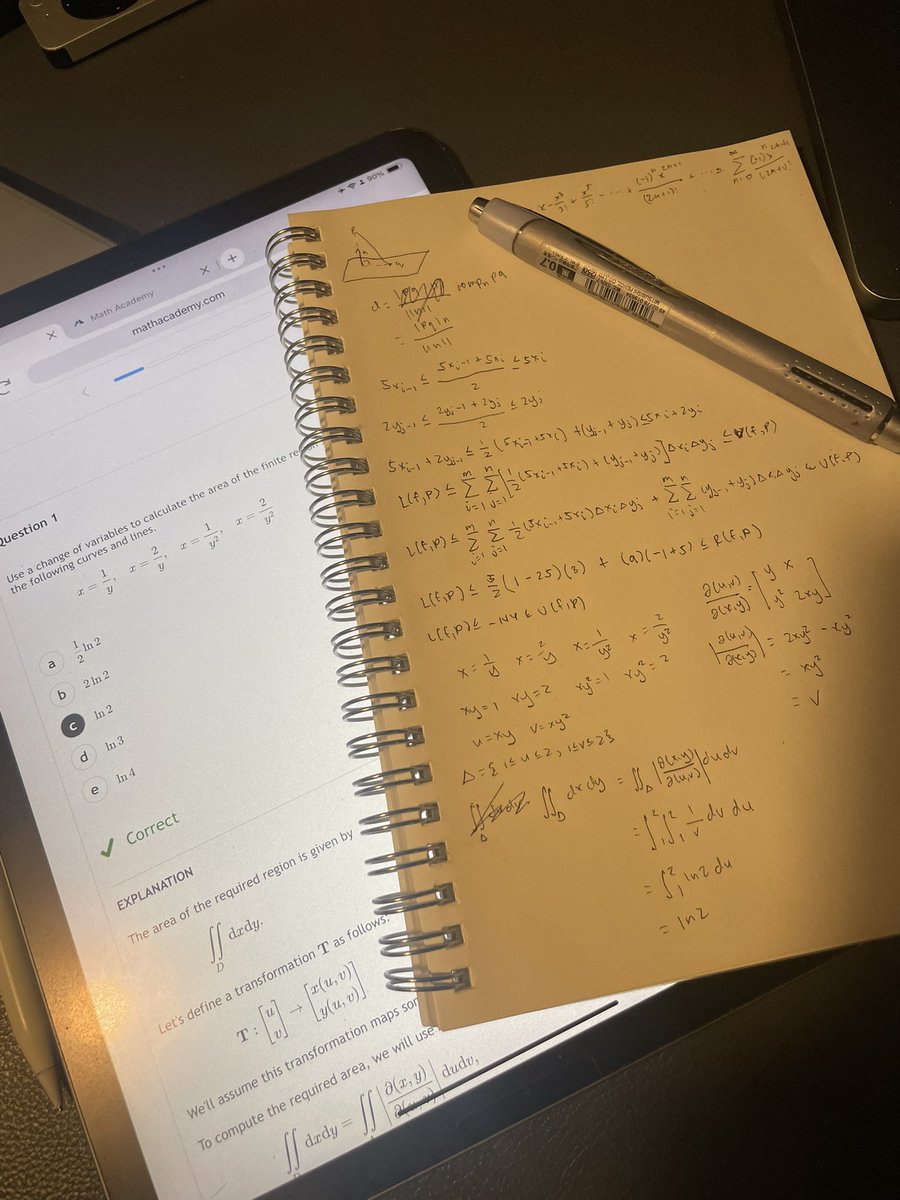 90%
Math Academy
mathacademy.com
Question 1
Use a change of variables to calculate the area of the finite
the following curves and lines.
x = 1/y, x = 2/y, x = 1/y², x = 2/y²
a 1/2 ln 2
b 2 ln 2
c ln 2
d ln 3
e ln 4
✓ Correct
EXPLANATION
The area of the required region is given by
∬_D dxdy.
Let's define a transformation T as follows:
T : [u v] → [x(u, v) y(u, v)]
We'll assume this transformation maps
To compute the required area, we will use
∬ dxdy = ∬ |∂(x, y)/∂(u, v)| dudv,
x - x³/3! + x⁵/5! - ... + (-1)ⁿ x²ⁿ⁺¹/(2n+1)! + ... = ∑_{n=0}^∞ (-1)ⁿ x²ⁿ⁺¹/(2n+1)!
d = compₙ PQ
= |PQ|n/||n||
5xᵢ₋₁ ≤ (5xᵢ₋₁ + 5xᵢ)/2 ≤ 5xᵢ
2yⱼ₋₁ ≤ (2yⱼ₋₁ + 2yⱼ)/2 ≤ 2yⱼ
5xᵢ₋₁ + 2yⱼ₋₁ ≤ 1/2 (5xᵢ₋₁ + 5xᵢ) + (yⱼ₋₁ + yⱼ) ≤ 5xᵢ + 2yⱼ
L(f,P) ≤ ∑_{i=1}^m ∑_{j=1}^n [1/2 (5xᵢ₋₁ + 5xᵢ) + (yⱼ₋₁ + yⱼ)] Δxᵢ Δyⱼ ≤ U(f,P)
L(f,P) ≤ ∑_{i=1}^m ∑_{j=1}^n 1/2 (5xᵢ₋₁ + 5xᵢ) Δxᵢ Δyⱼ + ∑_{i=1}^m ∑_{j=1}^n (yⱼ₋₁ + yⱼ) Δxᵢ Δyⱼ ≤ U(f,P)
L(f,P) ≤ 5/2 (1-25)(3) + (9)(-1+5) ≤ R(f,P)
L(f,P) ≤ -144 ≤ U(f,P)
x = 1/y x = 2/y x = 1/y² x = 2/y²
xy = 1 xy = 2 xy² = 1 xy² = 2
u = xy v = xy²
Δ = { 1 ≤ u ≤ 2, 1 ≤ v ≤ 2 }
∬_D dxdy = ∬_D |∂(x,y)/∂(u,v)| dudv
= ∫₁² ∫₁² 1/v dv du
= ∫₁² ln2 du
= ln2
∂(u,v)/∂(x,y) = [y x y² 2xy]
|∂(u,v)/∂(x,y)| = 2xy² - xy²
= xy²
= v